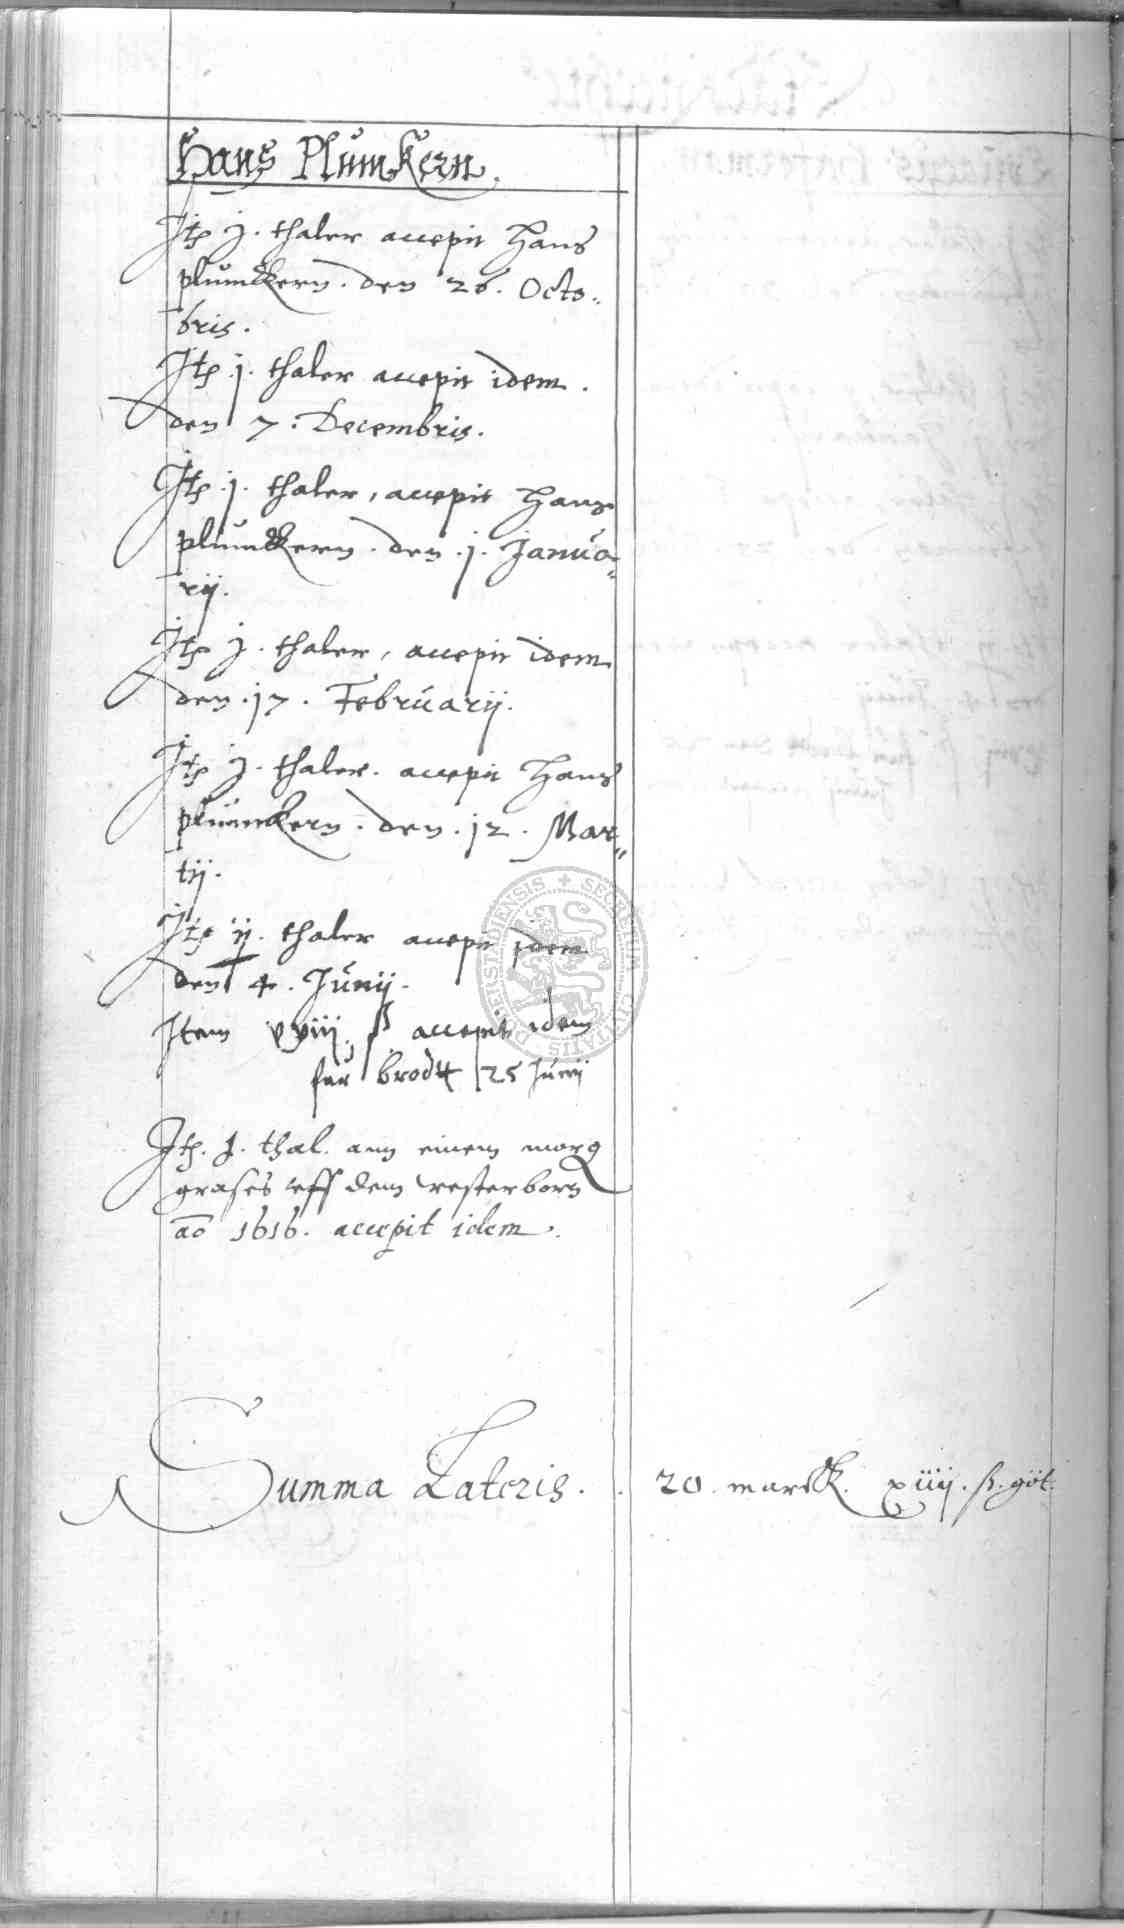 Hans Plumkern.
Itp j. thaler accepit Hans
plumkern. den 26. Octo„
bris.
Itp .j. thaler accepit idem.
den 7. Decembris.
Itp .j. thaler, accepit Hans
plumkern. den .j. Janua„
rij.
Itp j. thaler, accepit idem
den .17. Februarij.
Itp j. thaler. accepit Hans
plumkern. den .12. Mar„
tij.
Itp ij. thaler accepit idem
den 4. Junij.
Item xviij ß accepit idem
fur brodtt 25 Junij
Itp. j. thal. ann einem morg
grases uff dem resterborn
ao 1616. accepit idem.
Summa Lateris. . 20. marck. xiiij. ß. göt.
SECRETUM CIVITATIS DVDERSTADIENSIS